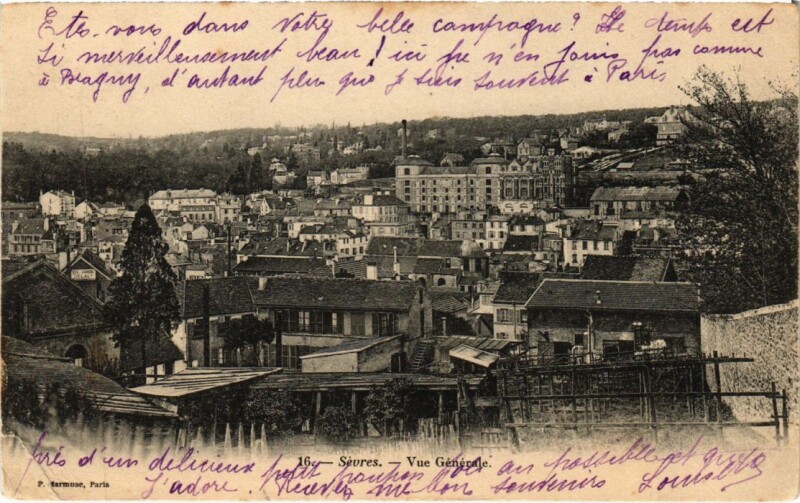 Etes-vous dans votre belle campagne? Le temps est
si merveilleusement beau! ici je n'en jouis pas comme
à Bragny, d'autant plus que je suis souvent à Paris
16. — Sèvres. — Vue Générale.
près d'un délicieux petit poupon que au possible et que
P. Marmuse, Paris
J'adore. Recevez mes bons souvenirs Louise